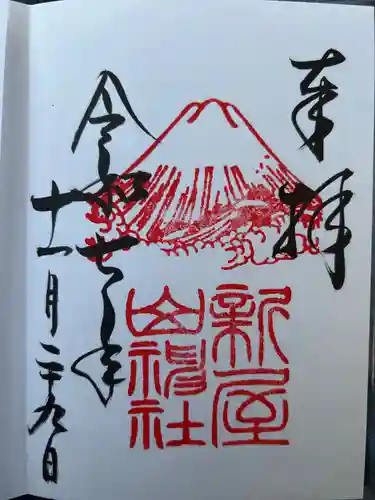 奉拝
新屋
山神社
令和七年
十一月二十九日